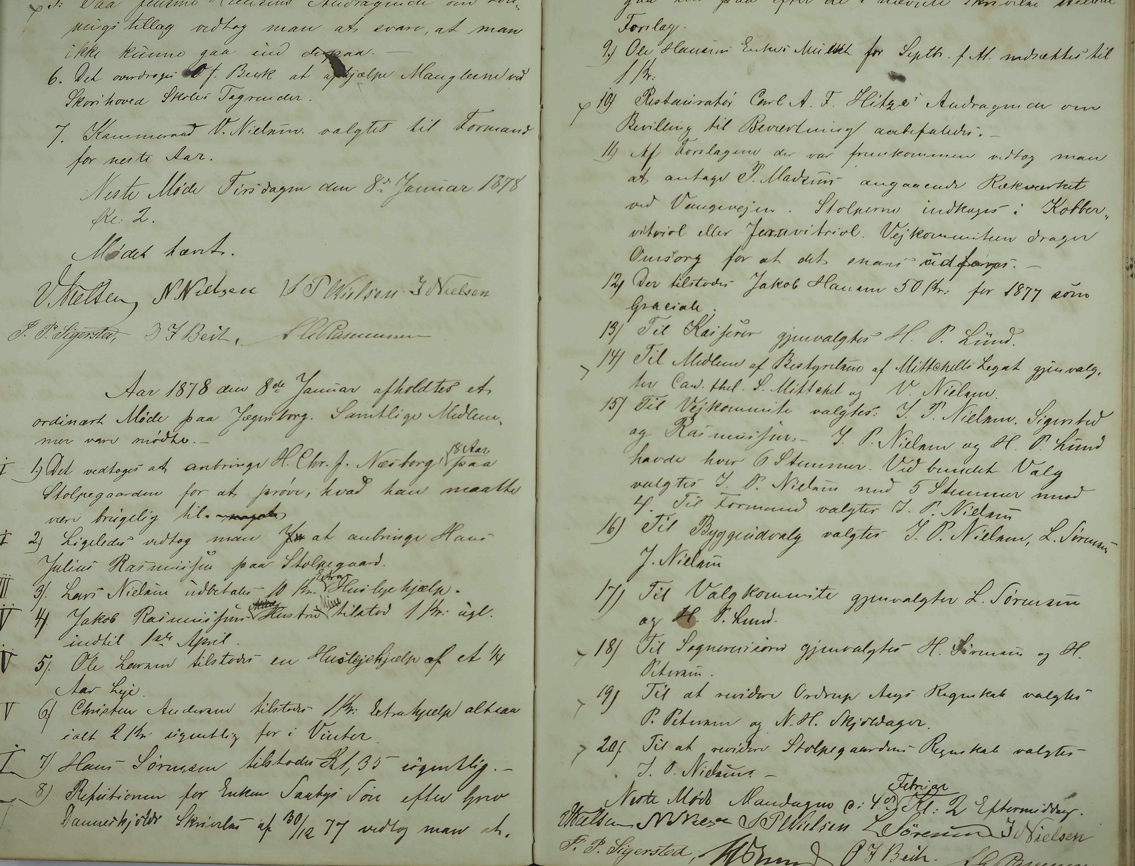 5. Paa Andragende om
ningstillæg vedtog man at svare, at man
ikke kunne gaa ind derpaa. —
6. Det overdroges J. Beck at afhjælpe Manglerne ved
Skovshoved Skoles Tagrender.
7. Kammerraad V. Nielsen valgtes til Formand
for neste Aar.
Neste Møde Tirsdagen den 8de Januar 1878
Kl: 2.
Mødet hævet.
N Nielsen J P Nielsen J Nielsen
F. P. Sigersted, J Beck, Rasmussen
Aar 1878 den 8de Januar afholdtes et
ordinært Møde paa Jægersborg. Samtlige Medlem-
mer vare mødte. —
1) Det vedtoges at anbringe H. Chr. J. Næsborg, 18 Aar paa
Stolpegaarden for at prøve, hvad han maatte
være brugelig til
2) Ligeledes vedtog man at anbringe Hans
Julius Rasmussen paa Stolpegaard.
3) Lars Nielsen udbetales 10 Kr. Extra Huslejehjælp.
4) Jakob Rasmussens Hustru tilstod 1 Kr. ugl.
indtil 1ste April.
5) Ole Larsen tilstodes en Huslejehjælp af et 1/4
Aar Leje
6) Christen Andersen tilstodes 1 Kr. Extrahjælp altsaa
ialt 2 Kr. ugentlig for i Vinter.
7) Hans Sørensen tilstodes 1,35 ugentlig. —
8) for Enken Søn efter Grev
Danneskjolds Skrivelse af 30/12 77 vedtog man at
gaa ind paa efter de i nævnte Skrivelse
Forslag.
9) Ole Hansens Enkes for Septb. f. M. nedsættes til
1 Kr.
10) Restauratør Carl A. F. Hitzes Andragende om
Bevilling til Beværtning anbefaledes. —
11) Af Forslagene der var fremkommen vedtog man
at antage P. Madsens angaaende Rækværket
ved Vangevejen. Stolperne indkoges i Kobber-
vitriol eller Jernvitriol. Vejkommiteen drager
Omsorg for at det snart udføres. —
12) Der tilstodes Jakob Hansen 50 Kr. for 1877 som
Graciale.
13) Til Kasserer gjenvalgtes H. P. Lund.
14) Til Medlem af Bestyrelsen af Mittchells Legat gjenvalg-
tes Cand. thel. S. Mittchel og V. Nielsen.
15) Til Vejkommite valgtes: J. P. Nielsen, Sigersted
og Rasmussen. — J. P. Nielsen og H. P. Lund
havde hver 6 Stemmer. Ved bundet Valg
valgtes J. P. Nielsen med 5 Stemmer mod
4. Til Formand valgtes J. P. Nielsen
16) Til Byggeudvalg valgtes J. P. Nielsen, L. Sørensen
J. Nielsen
17) Til Valgkommite gjenvalgtes L. Sørensen
og H. P. Lund.
18) Til Sognerevisorer gjenvalgtes H. Sørensen og H.
Petersen.
19) Til at revidere Ordrup Asyls Regnskab valgtes
P. Petersen og N. H. Skjoldager.
20) Til at revidere Stolpegaardens Regnskab valgtes
J. P. Nielsen —
Februar
Neste Møde Mandagen d: 4de Kl: 2 Eftermiddag.
N Nielsen J P Nielsen L Sørensen J Nielsen
F. P. Sigersted, J Beck.